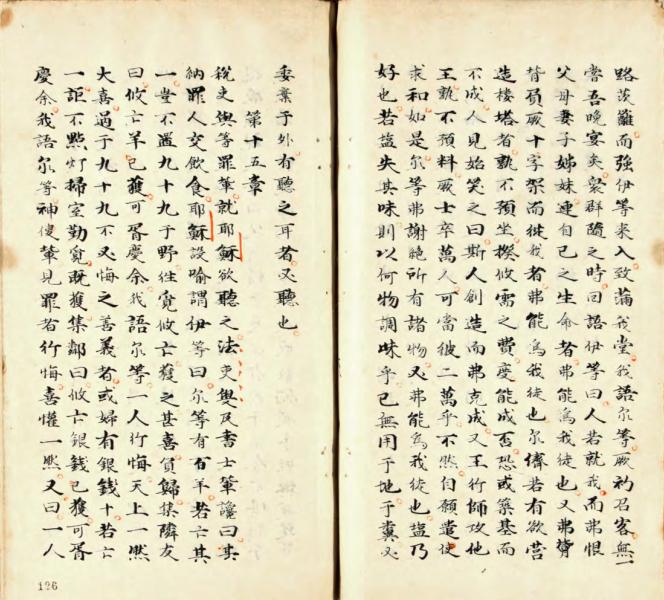 路茨籬而強伊等来入致蒲我堂我語尔等厥礽召客無一
嘗吾晚宴矣衆群隨之時回語伊等曰人若就我而弗恨
父母妻子姊妹連自己之生命者弗能為我徒也又弗
背負厥十字架而從我者弗能為我徒也尔儕若有欲營
造楼塔者孰不預坐揆攸需之費度能成否恐或築基而
不成人見始笑之曰斯人創造而弗克成又王行師攻他
王孰不預料厥士卒萬人可當彼二萬乎不然自願遣使
求和如是尔等弗謝絶所有諸物又弗能為我徒也塩乃
好也若塩失其味則以何物調味乎已無用于地于糞又
委棄于外有聽之耳者又聽也
第十五章
稅吏與等罪軰就耶穌欲聽之法吏與及書士軰讒曰其
納罪人交飲食耶穌設喻謂伊等曰尔等有百羊若亡其
一豈不置九十九于野往覓攸亡獲之甚喜負歸集隣友
曰攸亡羊已獲可胥慶余我語尔等一人行悔天上一然
大喜過于九十九不又悔之善義者或婦有銀錢十若亡
一詎不㸃灯掃室勤覓既獲集鄰曰攸亡銀錢已獲可胥
慶余我語尔等神使軰見罪者行悔喜懽一然又曰一人
126